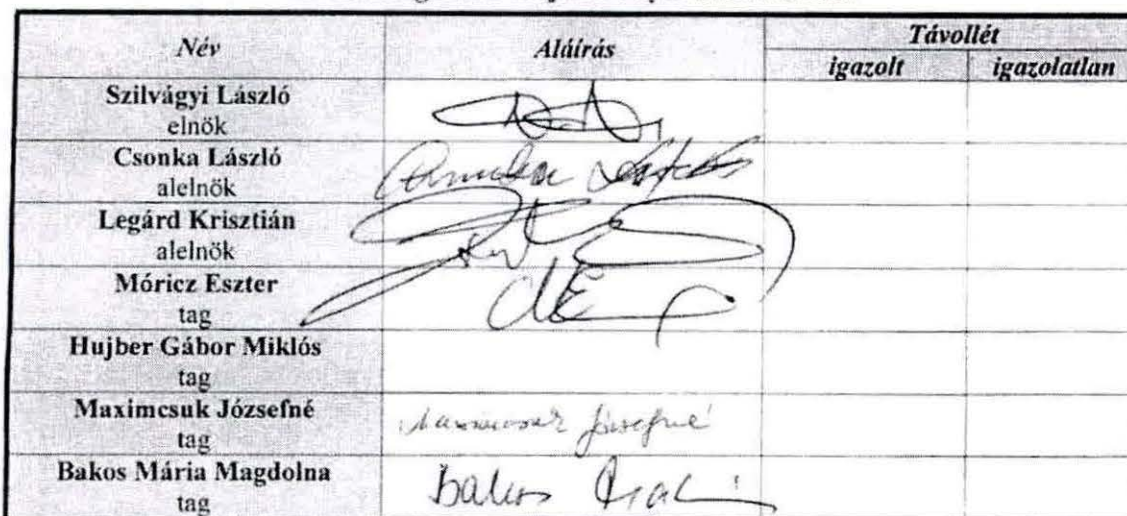 Név
Aláírás
Távollét
igazolt
igazolatlan
Szilvágyi László
elnök
Csonka László
alelnök
Legárd Krisztián
alelnök
Móricz Eszter
tag
Hujber Gábor Miklós
tag
Maximcsuk Józsefné
tag
Maximcsuk Józsefné
Bakos Mária Magdolna
tag
Bakos